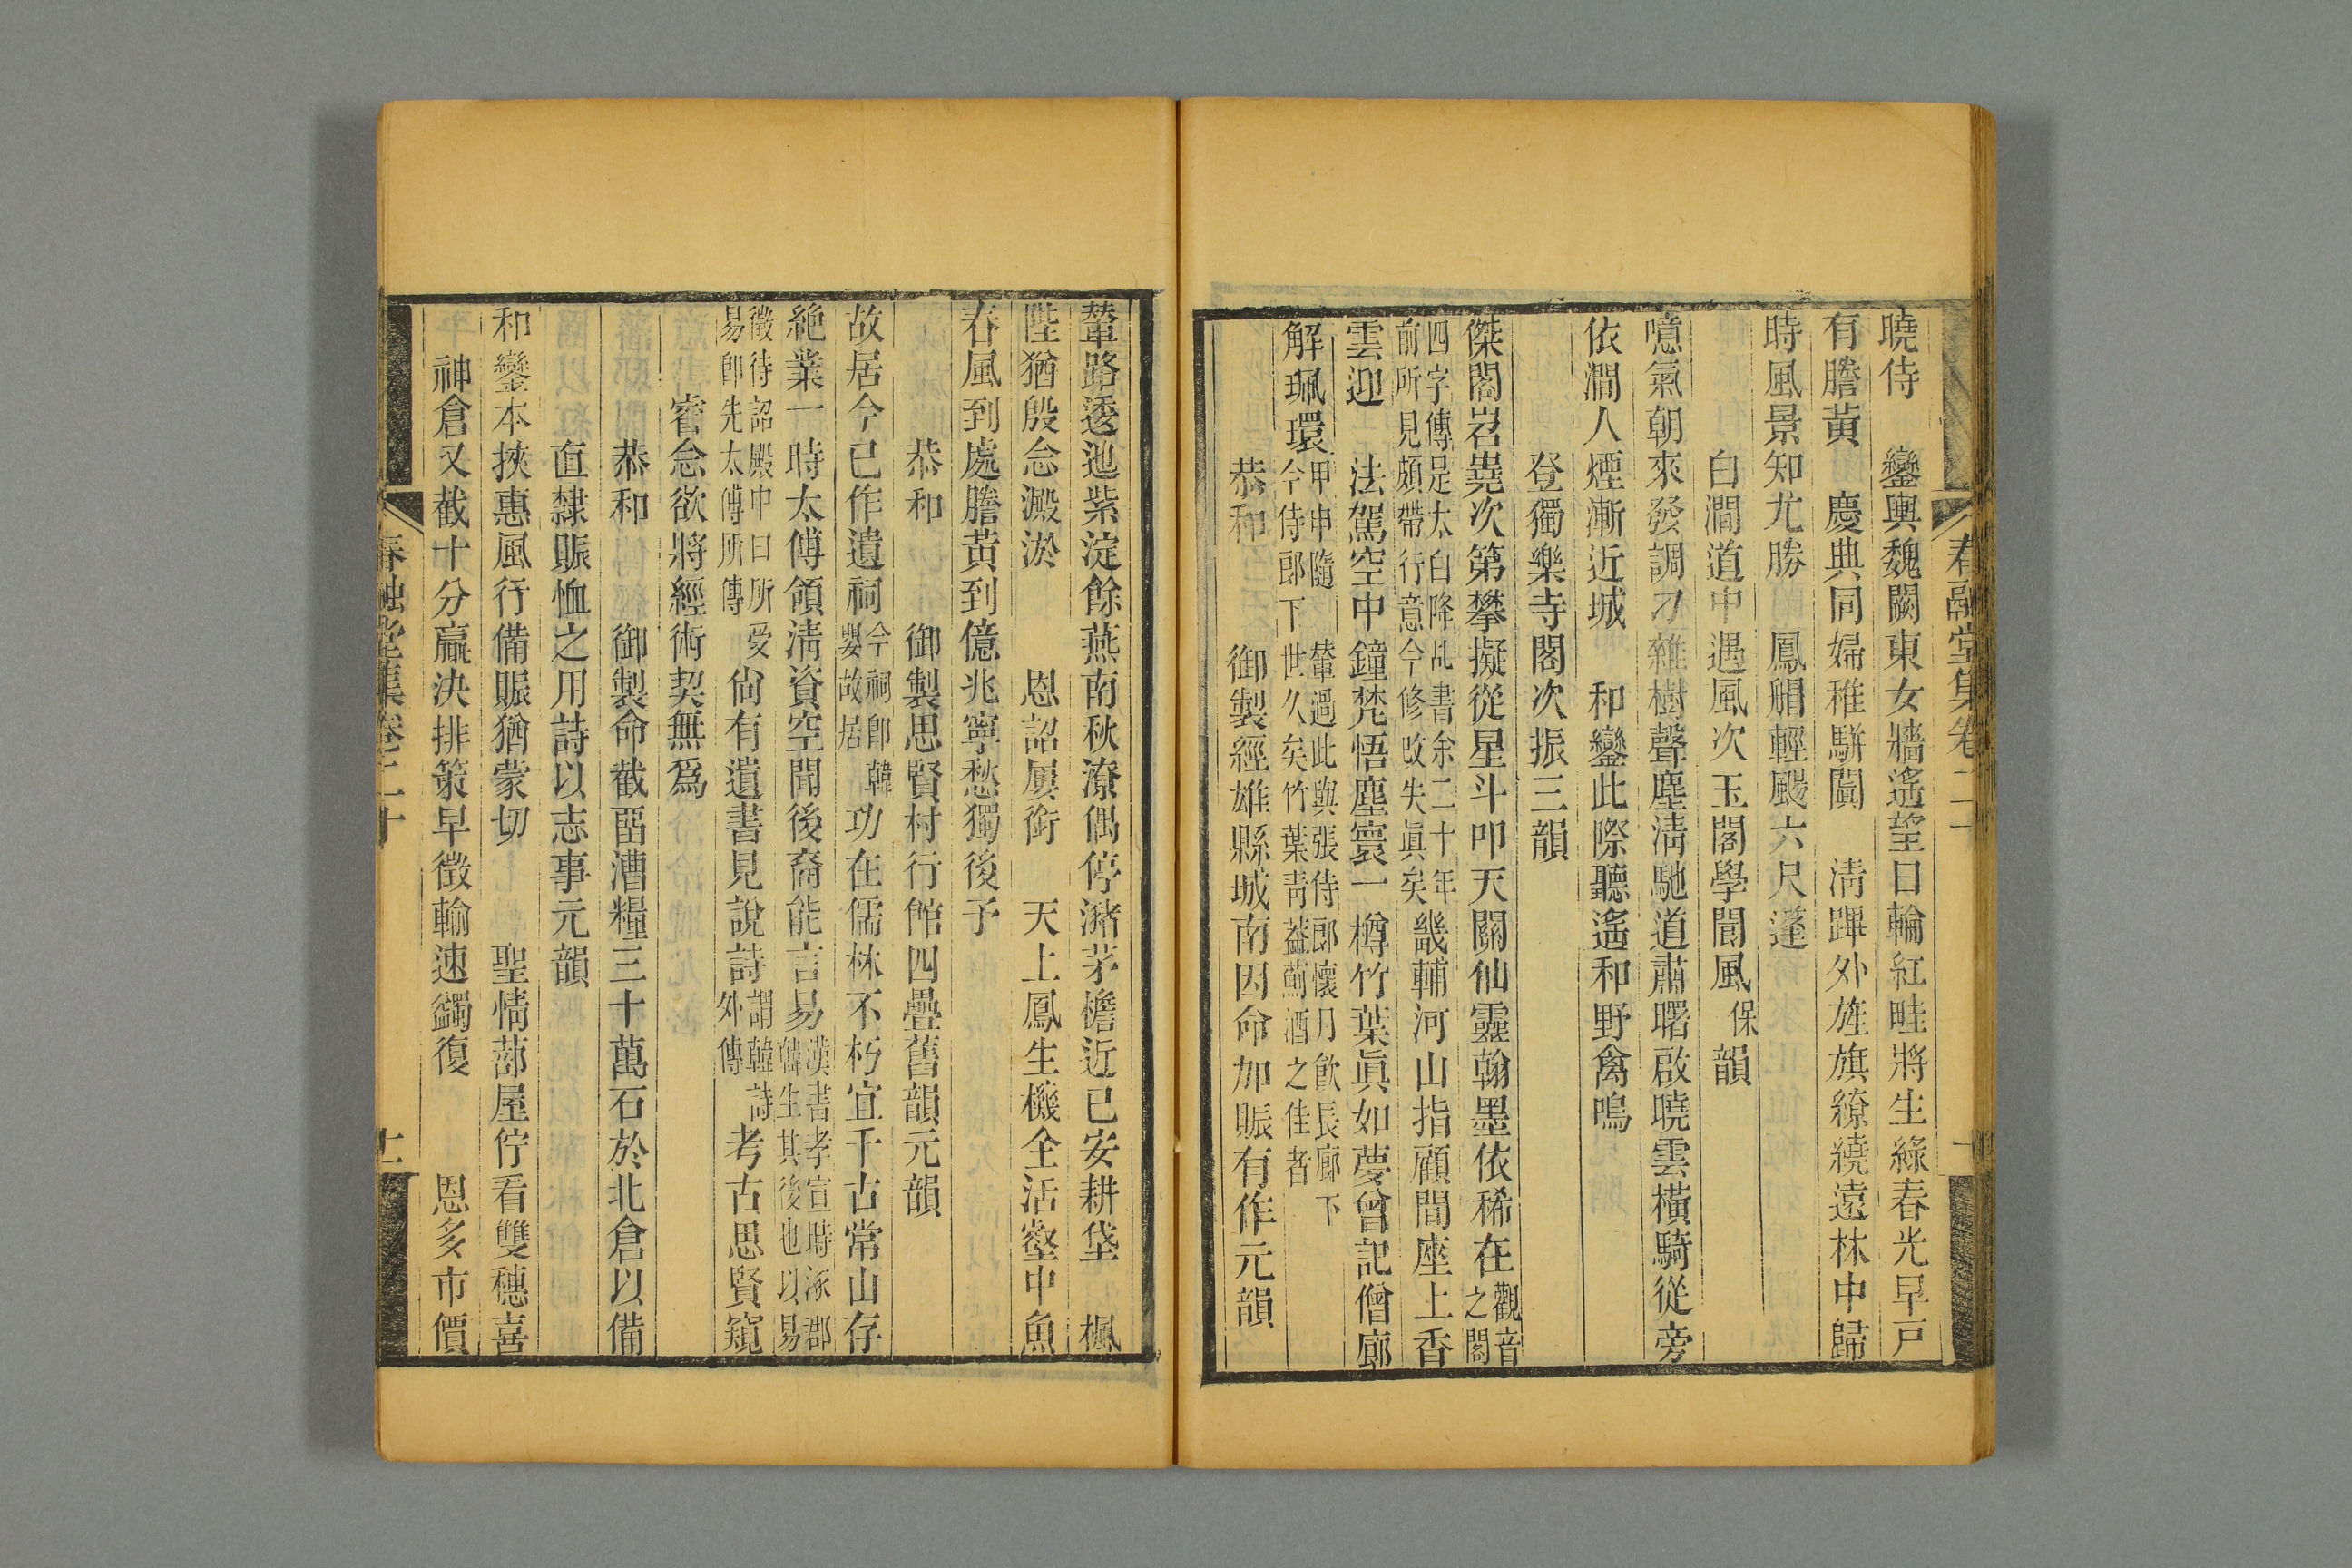 春融堂集卷二十
曉侍 鑾輿魏闕東女牆遙望日輪紅畦將生綠春光早戸
有謄黃 慶典同婦稚騈闐 清蹕外旌旗繚繞遠林中歸
時風景知尤勝 鳳艒輕颸六尺蓬
白澗道中遇風次玉閣學閬風保韻
噫氣朝來發調刁雜樹聲塵淸馳道肅曙啟曉雲橫騎從旁
依澗人煙漸近城 和鑾此際聽遙和野禽鳴
登獨樂寺閣次振三韻
傑閣岧嶤次第攀擬從星斗叩天關仙靈翰墨依稀在觀音之閣
四字傳是太白降乩書余二十年前所見頗帶行意今修改失眞矣畿輔河山指顧間座上香
雲迎 法駕空中鐘梵悟塵寰一樽竹葉眞如夢曾記僧廊
解珮環甲申隨 輦過此與張侍郎懷月飮長廊下今侍郎下世久矣竹葉靑葢薊酒之佳者
恭和 御製經雄縣城南因命加賑有作元韻
輦路逶迆紫淀餘燕南秋潦偶停瀦茅檐近已安耕垡 楓
陛猶殷念澱淤 恩詔屢銜 天上鳳生機全活壑中魚
春風到處謄黃到億兆寧愁獨後予
恭和 御製思賢村行館四疊舊韻元韻
故居今已作遺祠今祠卽韓嬰故居功在儒林不朽宜千古常山存
絶業一時太傅領淸資空聞後裔能言易漢書孝宣時涿郡韓生其後也以易
徵待詔殿中曰所受易卽先太傅所傳尙有遺書見說詩謂韓詩外傳考古思賢窺
睿念欲將經術契無爲
恭和 御製命截畱漕糧三十萬石於北倉以備
直隸賑恤之用詩以志事元韻
和鑾本挾惠風行備賑猶蒙切 聖情蔀屋佇看雙穗喜
神倉又截十分贏決排策早徵輸速蠲復 恩多市價
春融堂集卷二十
十一